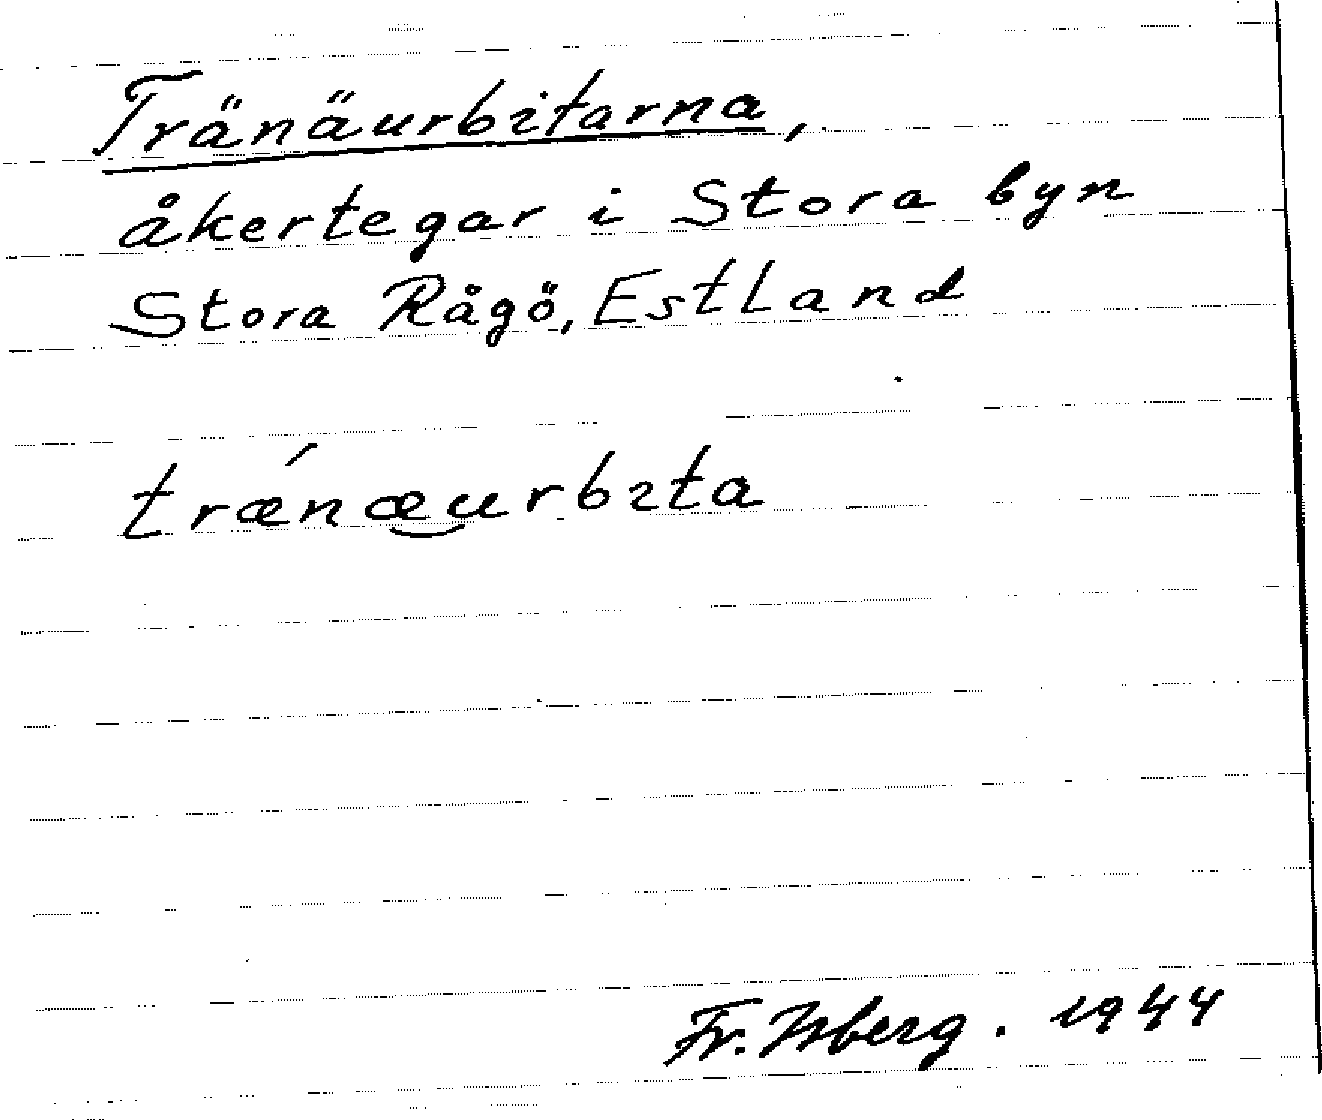 Tränäurbitarna,
åkertegar i Stora byn
Stora Rågö, Estland
trǽnæurbıta
Fr. Isberg. 1944